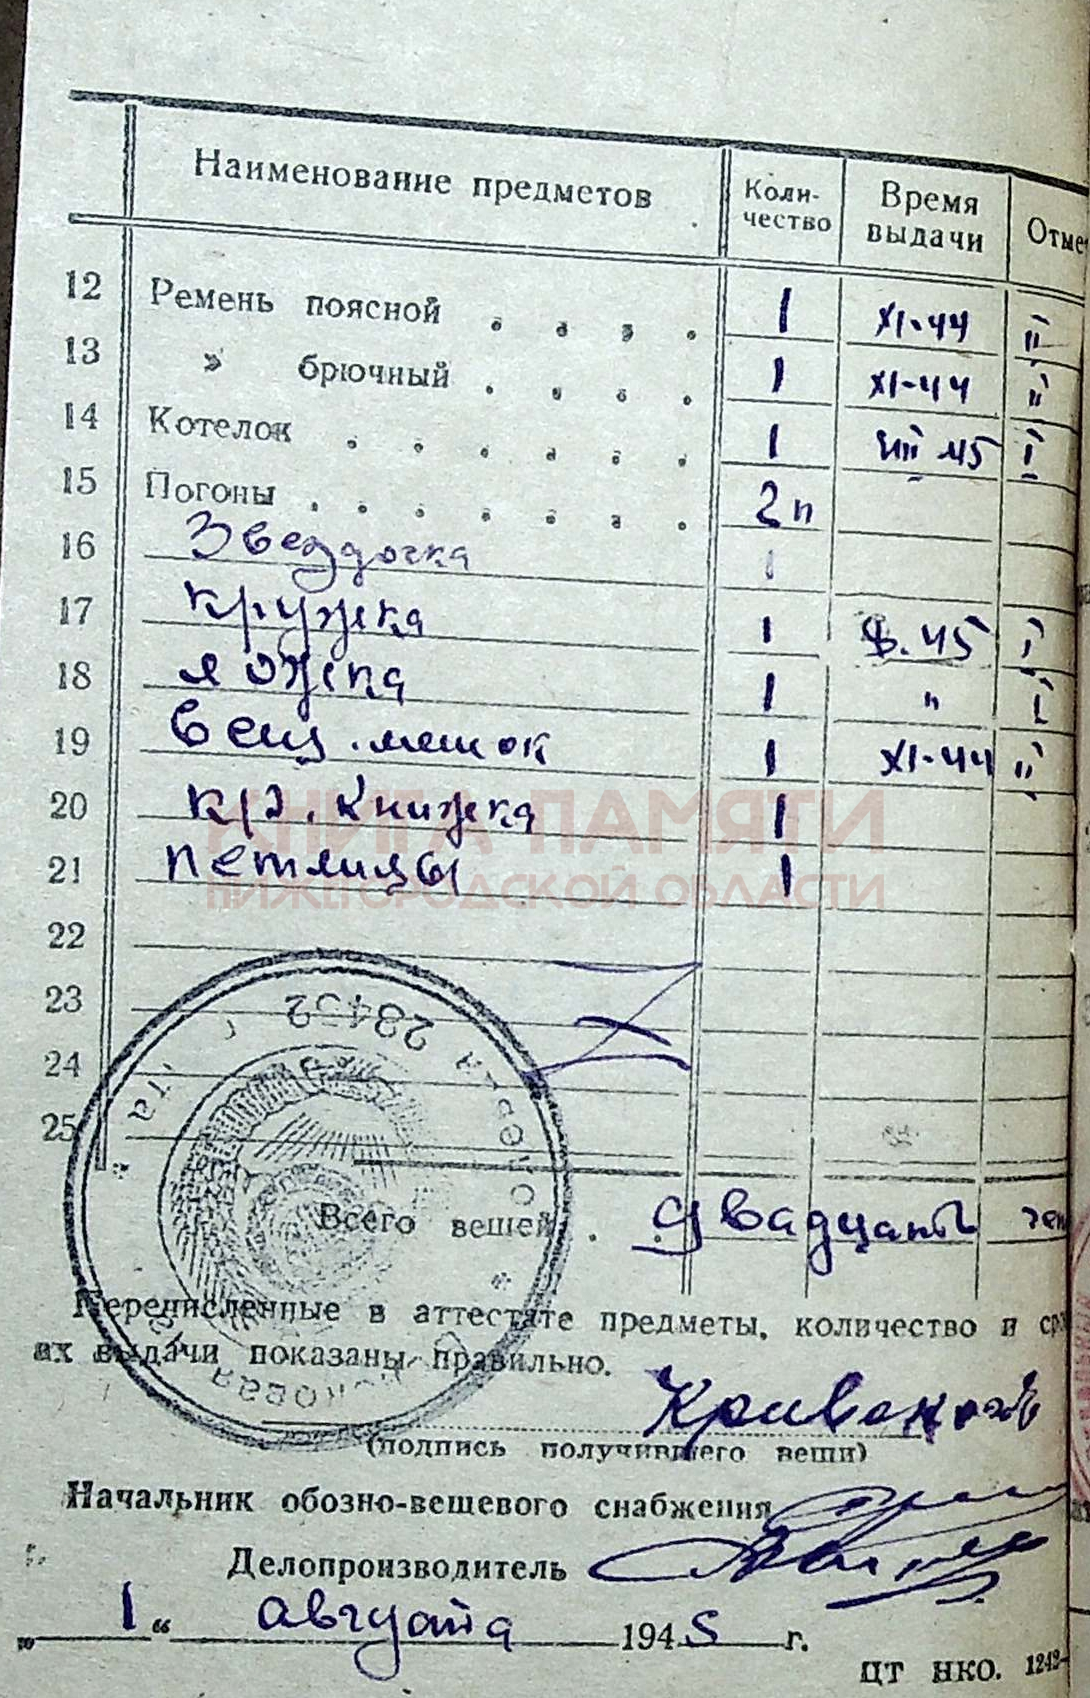 Наименование предметов Коли-чество Время выдачи Отме
12 Ремень поясной . . . . 1 XI-44 II
13 » брючный . . . . 1 XI-44 II
14 Котелок . . . . . . 1 VII 45 I
15 Погоны . . . . . . . 2 п
16 Звездочка 1
17 кружка 1 45 I
18 ложка 1 " I
19 вещ. мешок 1 XI-44 II
20 кр. книжка 1
21 петлицы 1
22
23
24
25
КНИГА ПАМЯТИ
НИЖЕГОРОДСКОЙ ОБЛАСТИ
Всего вещей . . двадцать
Перечисленные в аттестате предметы, количество и сро
их выдачи показаны правильно.
(подпись получившего вещи)
Начальник обозно-вещевого снабжения
Делопроизводитель
„ 1 “ августа 1945 г.
ЦТ НКО. 1242-